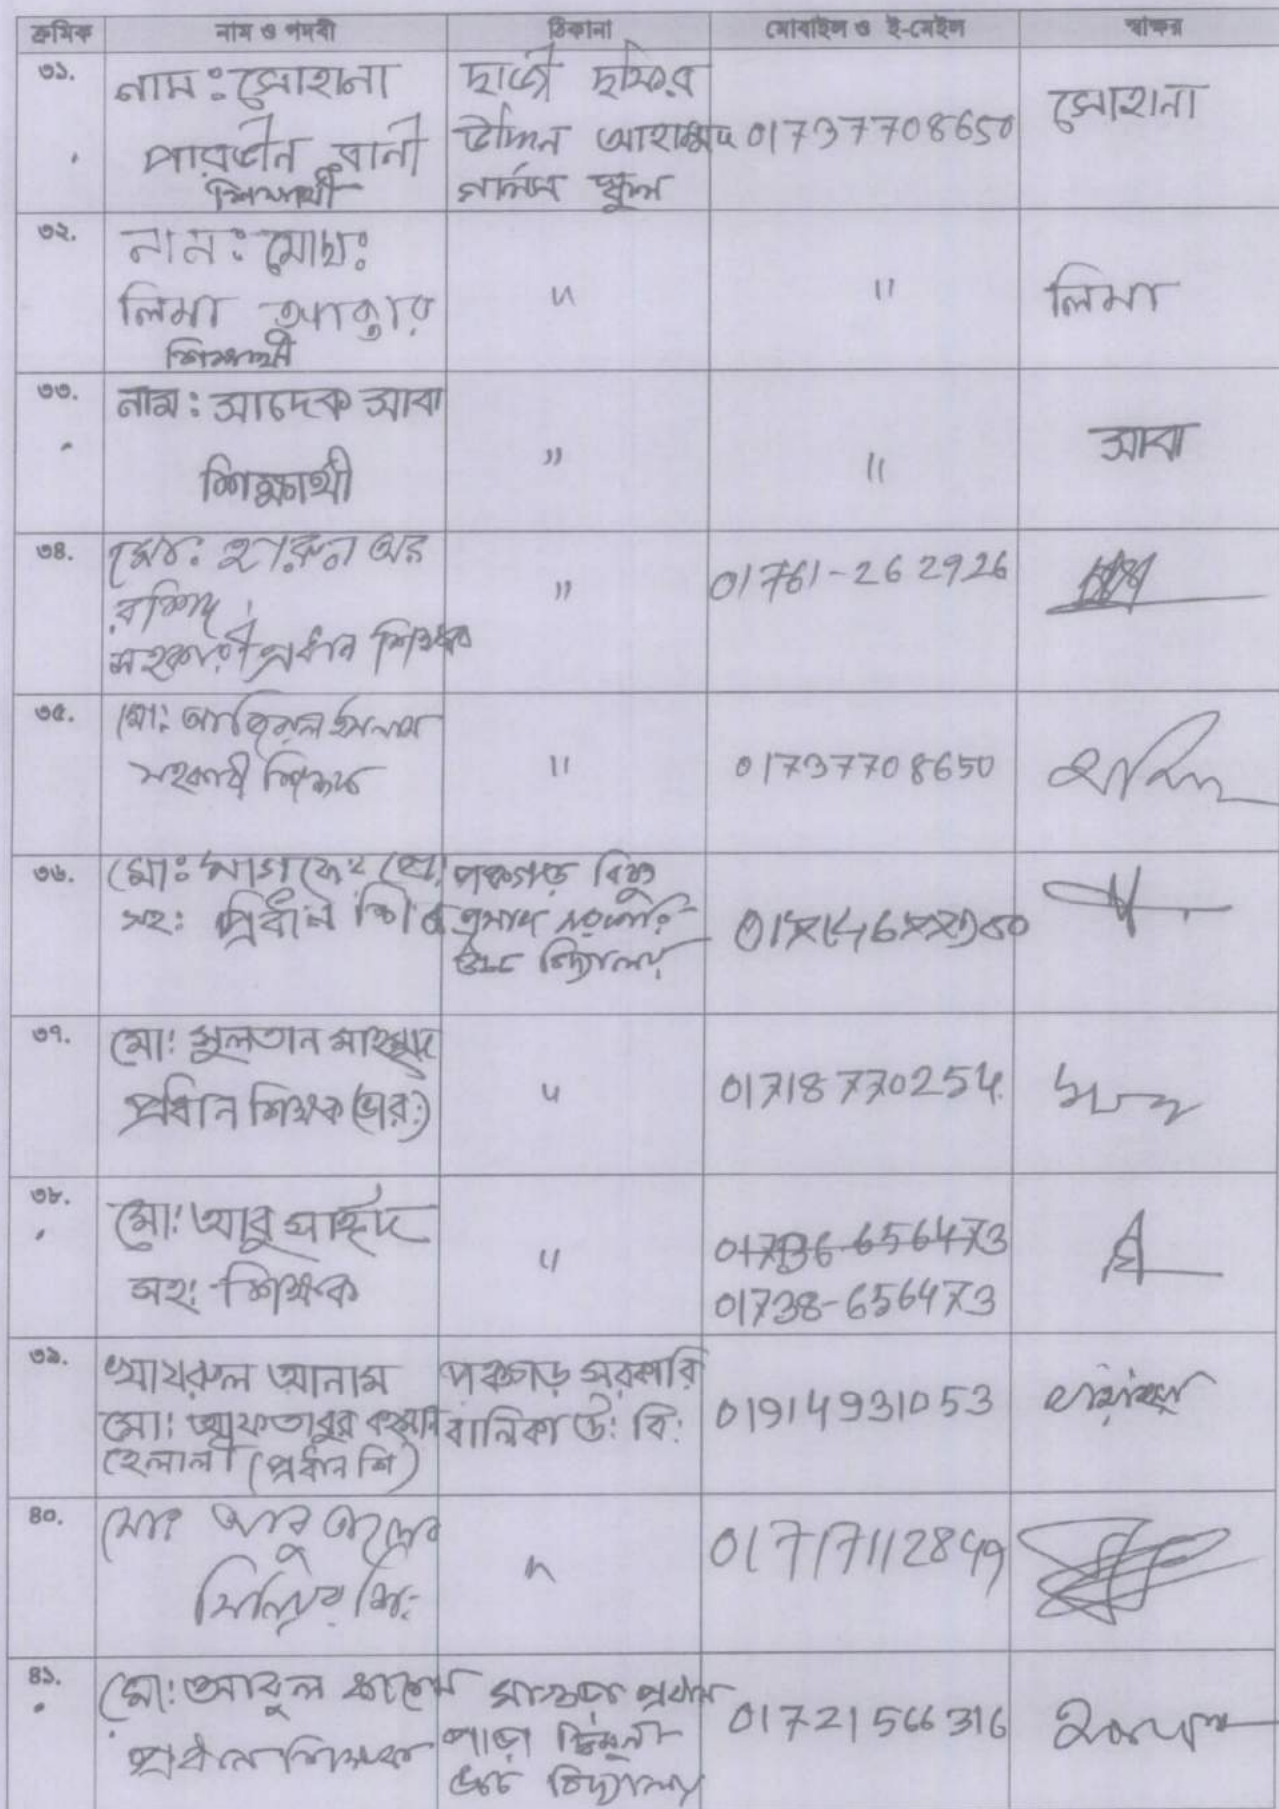 ক্রমিক নাম ও পদবী ঠিকানা মোবাইল ও ই-মেইল স্বাক্ষর
৩১. নাম: সোহানা পারভীন রানী শিক্ষার্থী
উদ্দিন আহাম্মদ গার্লস স্কুল
01737708650
সোহানা
৩২. নাম: মোছা:
লিমা আক্তার
শিক্ষার্থী
" "
লিমা
৩৩. নাম: সাদেক সাবা
শিক্ষার্থী
" "
সাবা
৩৪. মো: হারুন অর
রশিদ
সহকারী প্রধান শিক্ষক
"
01761-262926
৩৫. মো:
সহকারী শিক্ষক
"
01737708650
৩৬. মো:
সহ: প্রধান শি:
পঞ্চগড় বিষ্ণু
প্রসাদ সরকারি
উচ্চ বিদ্যালয়
৩৭. মো: সুলতান মাহমুদ
প্রধান শিক্ষক (ভার:)
"
01718770254
৩৮. মো: আবু সাঈদ
সহ: শিক্ষক
"
01736-656473
01738-656473
৩৯. খায়রুল আনাম
মো: আফতাবুর রহমান
হেলালী (প্রধান শি)
পঞ্চগড় সরকারি
বালিকা উ: বি:
01914931053
৪০. মো: আবু তালেব
সিনিয়র শি:
"
01717112849
৪১. মো: আবুল কাশেম
প্রধান শিক্ষক
প্রধান
পাড়া দ্বিমুখী
উচ্চ বিদ্যালয়
01721566316